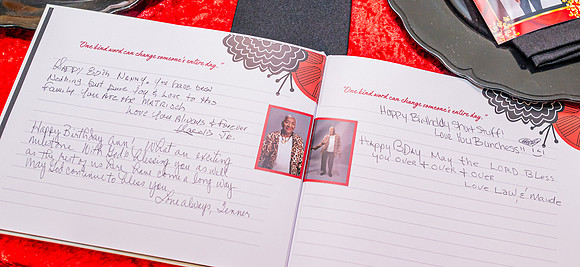 "One kind word can change someone's entire day."
HAPPY 80th Nanny. You have been
Nothing but pure Joy & Love to this
family. You Are the MATRIARCH
Love You Always & Forever
Harold JR.
Happy Birthday Ann! What an exciting
milestone. With God's blessing you as well
as the rest of us may have come a long way
may God continue to bless you
Love always,
"One kind word can change someone's entire day."
Happy Birthday Short Stuff!
Love You Bunches!!
Happy BDay, May the LORD Bless
you over & over & over
Love Law, & Maude